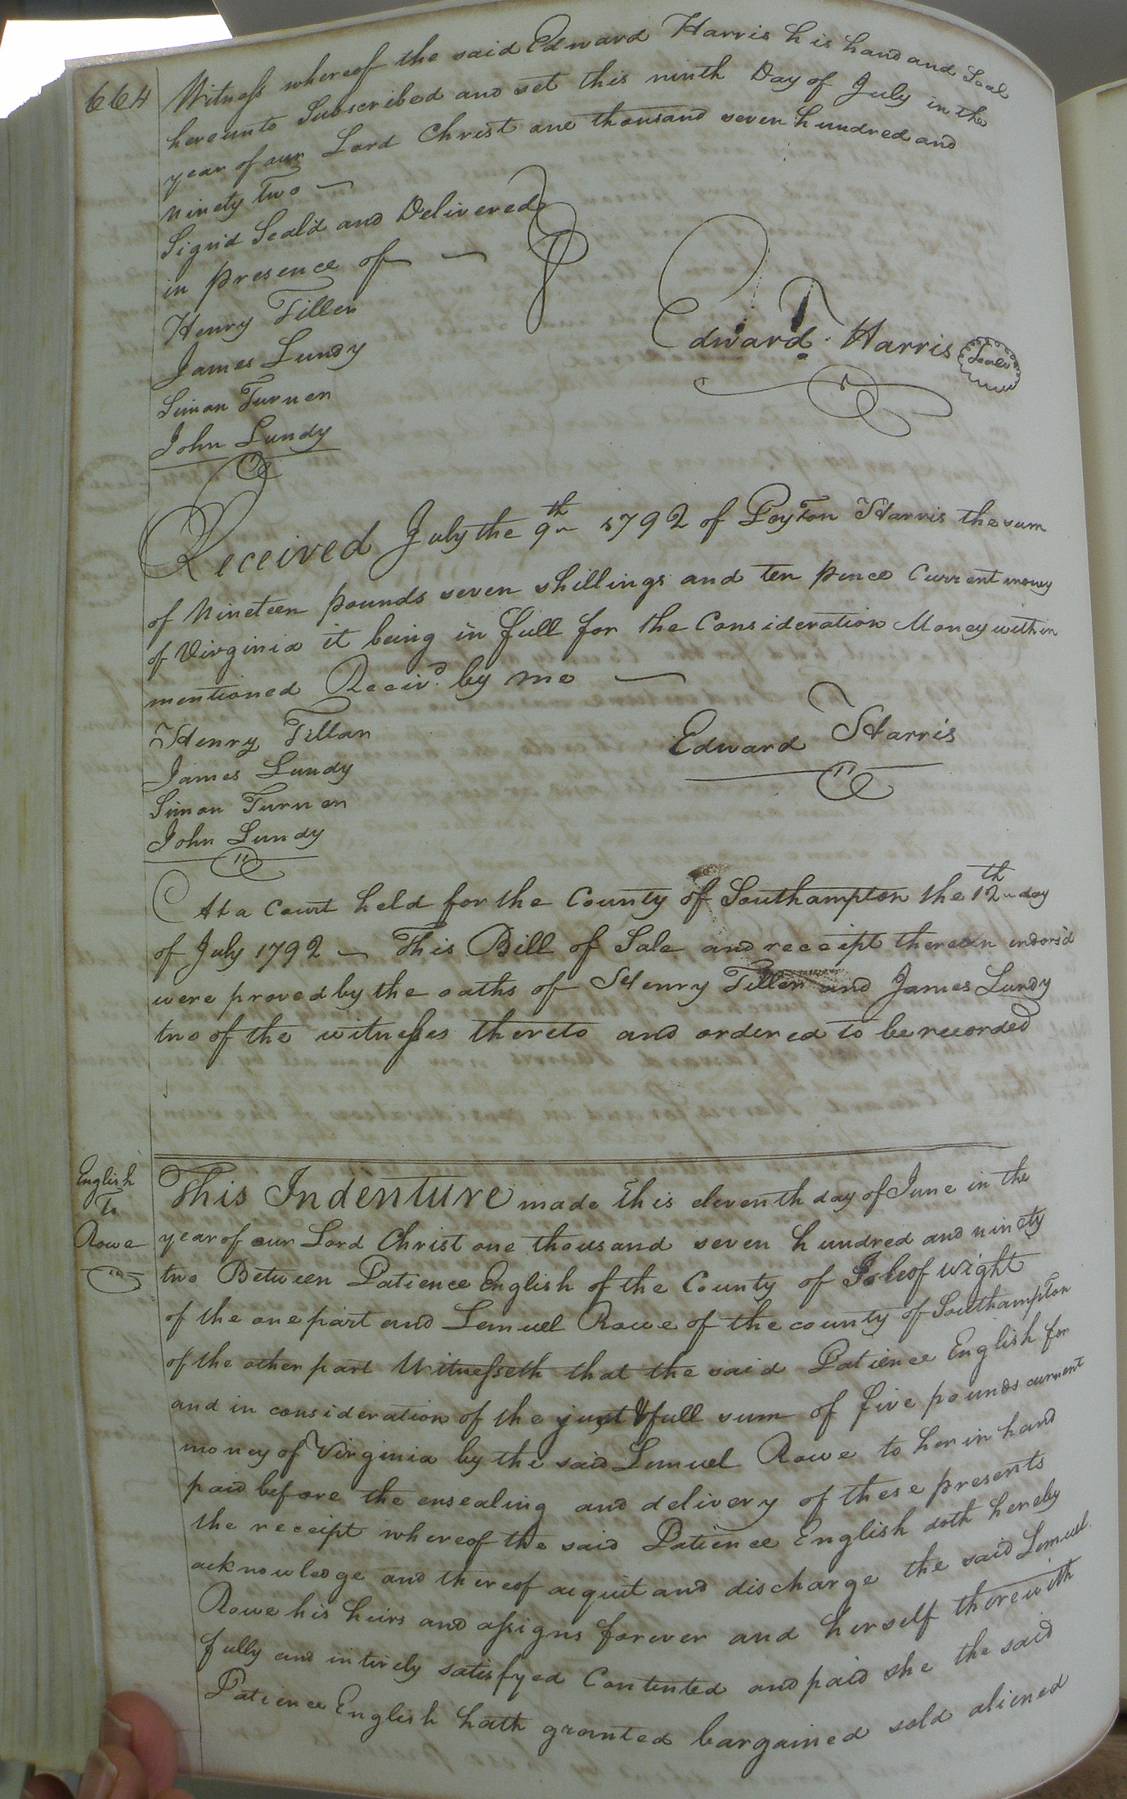 664
Witness whereof the said Edward Harris his hand and Seal
hereunto Subscribed and set this ninth Day of July in the
year of our Lord Christ one thousand seven hundred and
ninety Two
Sign'd Seal'd and Delivered
in presence of
Henry Tiller
James Lundy
Simon Turner
John Lundy
Edward Harris Seal
Received July the 9th 1792 of Peyton Harris the sum
of Nineteen pounds seven shillings and ten pence Current money
of Virginia it being in full for the Consideration Money within
mentioned Receiv'd by me
Henry Tillar
James Lundy
Simon Turner
John Lundy
Edward Harris
At a Court held for the County of Southampton the 12th day
of July 1792 This Bill of Sale and receipt thereon indors'd
were proved by the oaths of Henry Tiller and James Lundy
two of the witnesses thereto and ordered to be recorded
English
To
Rowe
This Indenture made this eleventh day of June in the
year of our Lord Christ one thousand seven hundred and ninety
two Between Patience English of the County of Isle of wight
of the one part and Lemuel Rowe of the county of Southampton
of the other part Witnesseth that the said Patience English for
and in consideration of the just & full sum of five pounds current
money of Virginia by the said Lemuel Rowe to her in hand
paid before the ensealing and delivery of these presents
the receipt whereof the said Patience English doth hereby
acknowledge and thereof acquit and discharge the said Lemuel
Rowe his heirs and assigns forever and herself therewith
fully and intirely satisfyed Contented and paid she the said
Patience English hath granted bargained sold aliened